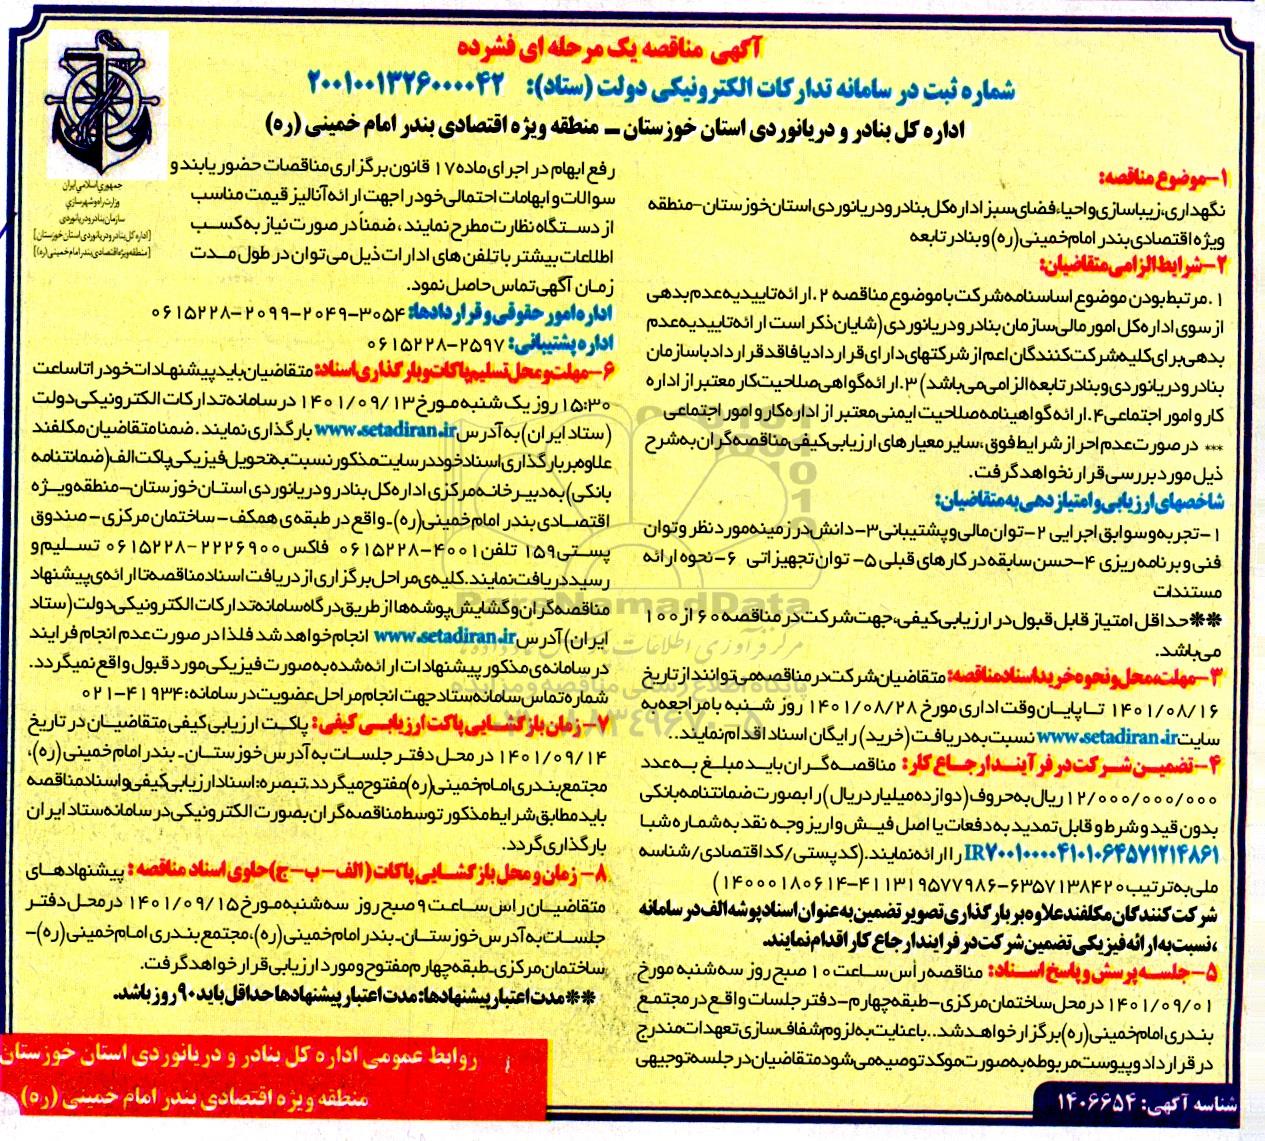 آگهی مناقصه یک مرحله ای فشرده
شماره ثبت در سامانه تدارکات الکترونیکی دولت (ستاد): ۲۰۰۱۰۰۱۳۲۶۰۰۰۰۴۲
اداره کل بنادر و دریانوردی استان خوزستان – منطقه ویژه اقتصادی بندر امام خمینی (ره)
جمهوری اسلامی ایران
وزارت راه و شهرسازی
سازمان بنادر و دریانوردی
[اداره کل بنادر و دریانوردی استان خوزستان]
[منطقه ویژه اقتصادی بندر امام خمینی (ره)]
۱-موضوع مناقصه:
نگهداری، زیباسازی و احیاء فضای سبز اداره کل بنادر و دریانوردی استان خوزستان-منطقه
ویژه اقتصادی بندر امام خمینی (ره) و بنادر تابعه
۲-شرایط الزامی متقاضیان:
۱. مرتبط بودن موضوع اساسنامه شرکت با موضوع مناقصه ۲. ارائه تاییدیه عدم بدهی
از سوی اداره کل امور مالی سازمان بنادر و دریانوردی (شایان ذکر است ارائه تاییدیه عدم
بدهی برای کلیه شرکت کنندگان اعم از شرکتهای دارای قرارداد یا فاقد قرارداد با سازمان
بنادر و دریانوردی و بنادر تابعه الزامی می باشد) ۳. ارائه گواهی صلاحیت کار معتبر از اداره
کار و امور اجتماعی ۴. ارائه گواهینامه صلاحیت ایمنی معتبر از اداره کار و امور اجتماعی
*** در صورت عدم احراز شرایط فوق، سایر معیارهای ارزیابی کیفی مناقصه گران به شرح
ذیل مورد بررسی قرار نخواهد گرفت.
شاخصهای ارزیابی و امتیازدهی به متقاضیان:
۱-تجربه و سوابق اجرایی ۲-توان مالی و پشتیبانی ۳-دانش در زمینه مورد نظر و توان
فنی و برنامه ریزی ۴-حسن سابقه در کارهای قبلی ۵- توان تجهیزاتی ۶-نحوه ارائه
مستندات
**حداقل امتیاز قابل قبول در ارزیابی کیفی، جهت شرکت در مناقصه ۶۰ از ۱۰۰
می باشد.
۳-مهلت، محل و نحوه خرید اسناد مناقصه: متقاضیان شرکت در مناقصه می توانند از تاریخ
۱۴۰۱/۰۸/۱۶ تا پایان وقت اداری مورخ ۱۴۰۱/۰۸/۲۸ روز شنبه با مراجعه به
سایت www.setadiran.ir نسبت به دریافت (خرید) رایگان اسناد اقدام نمایند..
۴-تضمین شرکت در فرآیند ارجاع کار: مناقصه گران باید مبلغ به عدد
۱۲/۰۰۰/۰۰۰/۰۰۰ ریال به حروف (دوازده میلیارد ریال) را بصورت ضمانتنامه بانکی
بدون قید و شرط و قابل تمدید به دفعات یا اصل فیش واریز وجه نقد به شماره شبا
IR۷۰۰۱۰۰۰۰۴۱۰۱۰۶۴۵۷۱۲۱۴۸۶۱ را ارائه نمایند. (کد پستی/کد اقتصادی/شناسه
ملی به ترتیب ۶۳۵۷۱۳۸۴۲۰-۴۱۱۳۱۹۵۷۷۹۸۶-۱۴۰۰۰۱۸۰۶۱۴)
شرکت کنندگان مکلفند علاوه بر بارگذاری تصویر تضمین به عنوان اسناد پوشه الف در سامانه
، نسبت به ارائه فیزیکی تضمین شرکت در فرایند ارجاع کار اقدام نمایند.
۵-جلسه پرسش و پاسخ اسناد: مناقصه رأس ساعت ۱۰ صبح روز سه شنبه مورخ
۱۴۰۱/۰۹/۰۱ در محل ساختمان مرکزی-طبقه چهارم-دفتر جلسات واقع در مجتمع
بندری امام خمینی (ره) برگزار خواهد شد.. با عنایت به لزوم شفاف سازی تعهدات مندرج
در قرارداد و پیوست مربوطه به صورت موکد توصیه می شود متقاضیان در جلسه توجیهی
رفع ابهام در اجرای ماده ۱۷ قانون برگزاری مناقصات حضور یابند و
سوالات و ابهامات احتمالی خود را جهت ارائه آنالیز قیمت مناسب
از دستگاه نظارت مطرح نمایند، ضمناً در صورت نیاز به کسب
اطلاعات بیشتر با تلفن های ادارات ذیل می توان در طول مدت
زمان آگهی تماس حاصل نمود.
اداره امور حقوقی و قراردادها: ۳۰۵۴-۲۰۴۹-۲۰۹۹-۰۶۱۵۲۲۸
اداره پشتیبانی: ۲۵۹۷-۰۶۱۵۲۲۸
۶-مهلت و محل تسلیم پاکات و بارگذاری اسناد: متقاضیان باید پیشنهادات خود را تا ساعت
۱۵:۳۰ روز یک شنبه مورخ ۱۴۰۱/۰۹/۱۳ در سامانه تدارکات الکترونیکی دولت
(ستاد ایران) به آدرس www.setadiran.ir بارگذاری نمایند. ضمنا متقاضیان مکلفند
علاوه بر بارگذاری اسناد خود در سایت مذکور نسبت به تحویل فیزیکی پاکت الف (ضمانتنامه
بانکی) به دبیرخانه مرکزی اداره کل بنادر و دریانوردی استان خوزستان-منطقه ویژه
اقتصادی بندر امام خمینی (ره)-واقع در طبقه ی همکف-ساختمان مرکزی-صندوق
پستی ۱۵۹ تلفن ۴۰۰۱-۰۶۱۵۲۲۸ فاکس ۲۲۲۶۹۰۰-۰۶۱۵۲۲۸ تسلیم و
رسید دریافت نمایند. کلیه ی مراحل برگزاری از دریافت اسناد مناقصه تا ارائه ی پیشنهاد
مناقصه گران و گشایش پوشه ها از طریق درگاه سامانه تدارکات الکترونیکی دولت (ستاد
ایران) آدرس www.setadiran.ir انجام خواهد شد فلذا در صورت عدم انجام فرایند
در سامانه ی مذکور پیشنهادات ارائه شده به صورت فیزیکی مورد قبول واقع نمیگردد.
شماره تماس سامانه ستاد جهت انجام مراحل عضویت در سامانه: ۴۱۹۳۴-۰۲۱
۷-زمان بازگشایی پاکت ارزیابی کیفی: پاکت ارزیابی کیفی متقاضیان در تاریخ
۱۴۰۱/۰۹/۱۴ در محل دفتر جلسات به آدرس خوزستان- بندر امام خمینی (ره)،
مجتمع بندری امام خمینی (ره) مفتوح میگردد. تبصره: اسناد ارزیابی کیفی و اسناد مناقصه
باید مطابق شرایط مذکور توسط مناقصه گران بصورت الکترونیکی در سامانه ستاد ایران
بارگذاری گردد.
۸- زمان و محل بازگشایی پاکات (الف-ب-ج) حاوی اسناد مناقصه: پیشنهادهای
متقاضیان راس ساعت ۹ صبح روز سه شنبه مورخ ۱۴۰۱/۰۹/۱۵ در محل دفتر
جلسات به آدرس خوزستان- بندر امام خمینی (ره)، مجتمع بندری امام خمینی (ره)-
ساختمان مرکزی-طبقه چهارم مفتوح و مورد ارزیابی قرار خواهد گرفت.
**مدت اعتبار پیشنهادها: مدت اعتبار پیشنهادها حداقل باید ۹۰ روز باشد.
روابط عمومی اداره کل بنادر و دریانوردی استان خوزستان
منطقه ویژه اقتصادی بندر امام خمینی (ره)
شناسه آگهی: ۱۴۰۶۶۵۴
ParsNamadData